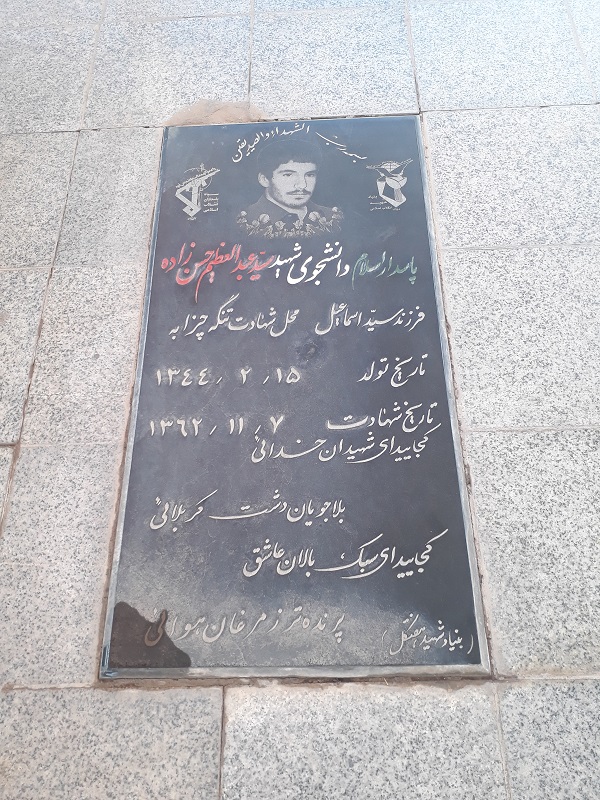 بسم رب الشهداء والصدیقین
پاسدار اسلام دانشجوی شهید سید عبدالعظیم حسن زاده
فرزند سید اسماعیل محل شهادت تنگه چزابه
تاریخ تولد ۱۵ / ۲ / ۱۳۴۴
تاریخ شهادت ۷ / ۱۱ / ۱۳۶۲
کجایید ای شهیدان خدائی
بلاجویان دشت کربلائی
کجایید ای سبک بالان عاشق
پرنده تر ز مرغان هوائی
(بنیاد شهید هفتکل)